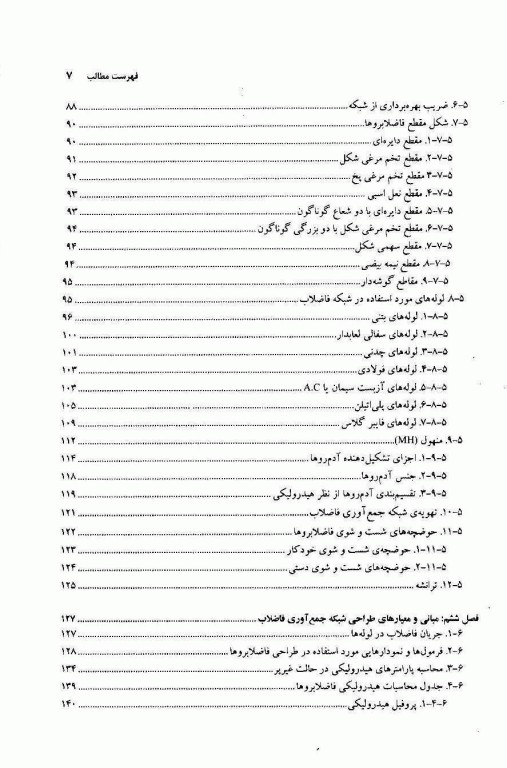 فهرست مطالب ۷
۵-۶. ضریب بهره‌برداری از شبکه ۸۸
۵-۷. شکل مقطع فاضلابروها ۹۰
۵-۷-۱. مقطع دایره‌ای ۹۰
۵-۷-۲. مقطع تخم مرغی شکل ۹۱
۵-۷-۳ مقطع تخم مرغی پخ ۹۲
۵-۷-۴. مقطع نعل اسبی ۹۳
۵-۷-۵. مقطع دایره‌ای با دو شعاع گوناگون ۹۳
۵-۷-۶. مقطع تخم مرغی شکل با دو بزرگی گوناگون ۹۴
۵-۷-۷. مقطع سهمی شکل ۹۴
۵-۷-۸. مقطع نیمه بیضی ۹۴
۵-۷-۹. مقاطع گوشه‌دار ۹۵
۵-۸ لوله‌های مورد استفاده در شبکه فاضلاب ۹۵
۵-۸-۱. لوله‌های بتنی ۹۶
۵-۸-۲. لوله‌های سفالی لعابدار ۱۰۰
۵-۸-۳. لوله‌های چدنی ۱۰۱
۵-۸-۴. لوله‌های فولادی ۱۰۳
۵-۸-۵. لوله‌های آزبست سیمان یا A.C ۱۰۳
۵-۸-۶. لوله‌های پلی‌اتیلن ۱۰۵
۵-۸-۷. لوله‌های فایبر گلاس ۱۰۹
۵-۹. منهول (MH) ۱۱۲
۵-۹-۱. اجزای تشکیل‌دهنده آدم‌روها ۱۱۴
۵-۹-۲. جنس آدم‌روها ۱۱۸
۵-۹-۳. تقسیم‌بندی آدم‌روها از نظر هیدرولیکی ۱۱۹
۵-۱۰. تهویه‌ی شبکه جمع‌آوری فاضلاب ۱۲۱
۵-۱۱. حوضچه‌های شست و شوی فاضلابروها ۱۲۲
۵-۱۱-۱. حوضچه‌ی شست و شوی خودکار ۱۲۳
۵-۱۱-۲. حوضچه‌های شست و شوی دستی ۱۲۴
۵-۱۲. ترانشه ۱۲۵
فصل ششم: مبانی و معیارهای طراحی شبکه جمع‌آوری فاضلاب ۱۲۷
۶-۱. جریان فاضلاب در لوله‌ها ۱۲۷
۶-۲. فرمول‌ها و نمودارهایی مورد استفاده در طراحی فاضلابروها ۱۲۸
۶-۳. محاسبه پارامترهای هیدرولیکی در حالت غیرپر ۱۳۴
۶-۴. جدول محاسبات هیدرولیکی فاضلابروها ۱۳۹
۶-۴-۱. پروفیل هیدرولیکی ۱۴۰